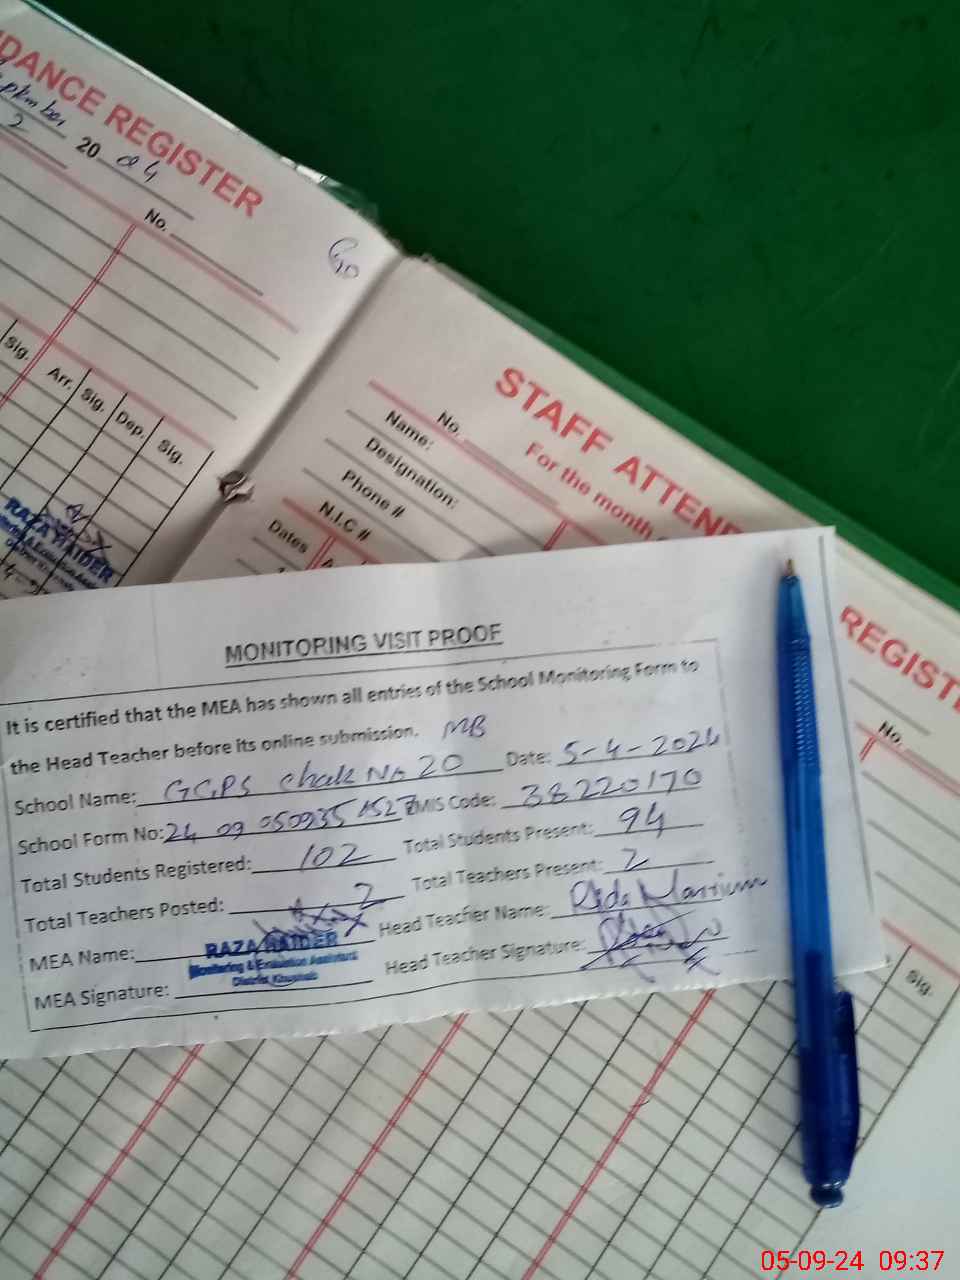 DANCE REGISTER
2 20 24
No.
Sig. Arr. Sig. Dep. Sig.
RAZA HAIDER
STAFF ATTEND
For the month
No.
Name:
Designation:
Phone #
N.I.C #
Dates
REGIST
No.
Sig.
MONITORING VISIT PROOF
It is certified that the MEA has shown all entries of the School Monitoring Form to
the Head Teacher before its online submission. MB
School Name: GGPS Chak No 20 Date: 5-4-2024
School Form No: 24 09 050935 MIS Code: 38220170
Total Students Registered: 102 Total Students Present: 94
Total Teachers Posted: 2 Total Teachers Present: 2
MEA Name: RAZA HAIDER Head Teacher Name: Rida Marrium
Monitoring & Evaluation Assistant
District Khushab
MEA Signature: Head Teacher Signature:
05-09-24 09:37